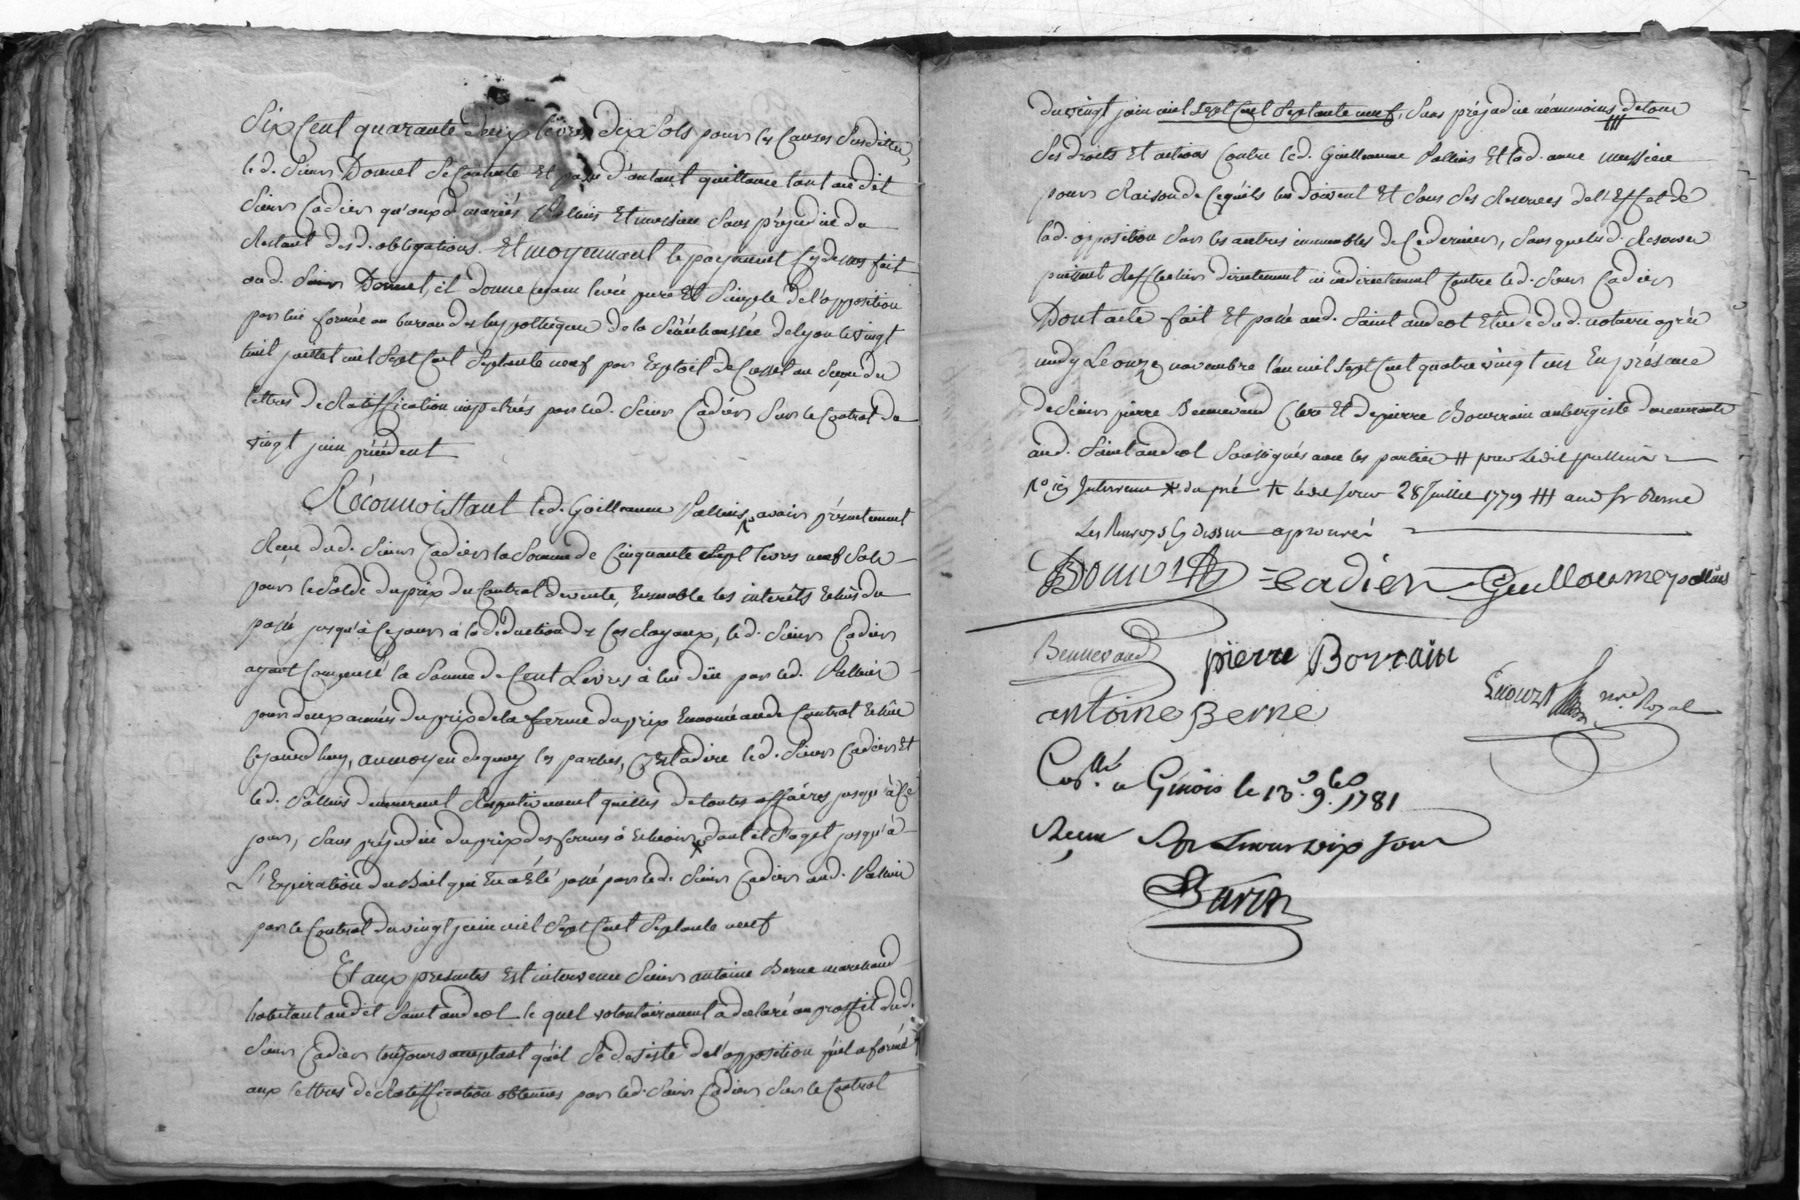 Six Cent quarante deux livres dix Sols pour les Causes Susdittes,
led. Sieur Donnet Se Contente Et passe d'autant quittance tant audit
Sieur Cadier qu'auxd. mariés Pallais Et messiere Sans préjudice du
Restant desd. obligations. Et moyennant le payement Cy dessus fait
aud. Sieur Donnet, il donne main levée pure Et Simple de l'opposition
par lui formée au bureau des hypotheques de la Sénéchaussée de Lyon le vingt
huit juillet mil Sept Cent Septante neuf par Exploit de au Sceau des
lettres de Ratiffication impetrées par led. Sieur Cadier Sur le Contrat du
vingt juin précédent
Réconnoissant led. Guillaume Pallais avoir présentement
Reçu dud. Sieur Cadier la Somme de Cinquante Sept livres neuf Sols
pour le Solde du prix du Contrat de vente, Ensemble les interets Echus du
passé jusqu'à Ce jour à la déduction des Royaux, led. Sieur Cadier
ayant Compensé la Somme de Cent Livres à lui düe par led. Pallais
pour deux années du prix de la ferme du prix Enoncé aud. Contrat Echüe
Cejourd'huy, au moyen de quoy les parties, C'est à dire led. Sieur Cadier Et
led. Pallais demeurent Respectivement quittes de toutes affaires jusqu'à Ce
jour, Sans préjudice du prix des fermes à Echeoir, dont il S'agit jusqu'à
L'Expiration du Bail qui En a Eté passé par led. Sieur Cadier aud. Pallais
par le Contrat du vingt juin mil Sept Cent Septante neuf
Et aux presentes Est intervenu Sieur antoine Berne marchand
habitant audit Saint andeol le quel volontairement a declaré au proffit dud.
Sieur Cadier toujours acceptant qu'il Se desiste de l'opposition qu'il a formé
aux lettres de Ratiffication obtenues par led. Sieur Cadier Sur le Contrat
du vingt juin mil Sept Cent Septante neuf, Sans préjudice néanmoins de tous
Ses droits Et actions Contre led. Guillaume Pallais Et lad. anne messiere
pour Raison de Ce qu'ils lui doivent Et Sous Ses Reserves de l'Effet de
lad. opposition Sur les autres immeubles de Ce dernier, Sans que lesd. Reserves
puissent Reffléchir directement ni indirectement Contre led. Sieur Cadier
Dont acte fait Et passé aud. Saint andeol Etude dud. notaire après
midy Le onze novembre l'an mil Sept Cent quatre vingt un En présence
de Sieur pierre Bennevaud Clerc Et de pierre Bourrain aubergiste demeurants
aud. Saint andeol Soussignés avec les parties # pour Ledit pallais
* du pré led. jour 28 Juillet 1779 ### aud. Sr Berne
Les Renvoys Cy Dessus aprouvés
Donnet Cadier Guilloume pallais
Bennevaud pierre Borrain
antoine Berne
nre. Royal
Con.llé a Givors le 13.e 9.bre 1781
Reçu livres dix sous
Baron